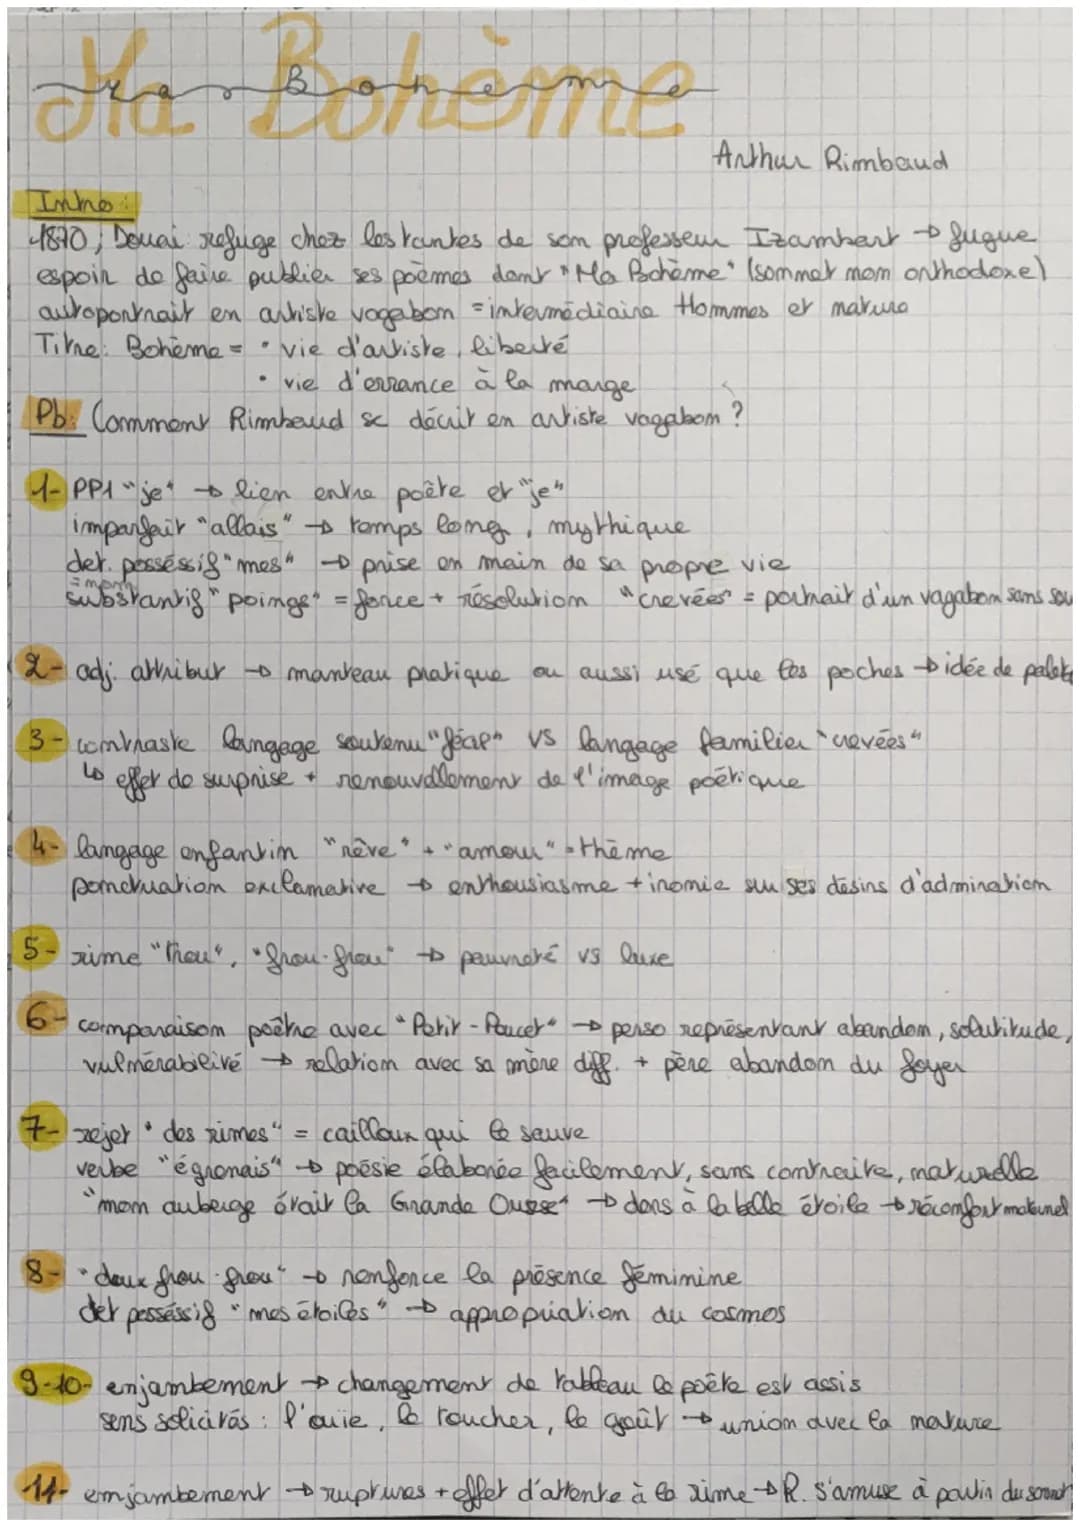 Ma Bohème
Ma Bohème
Arthur Rimbaud
Intro :
1870, Douai refuge chez les tantes de son professeur Izambart → fugue
espoir de faire publier ses poèmes dont "Ma Bohème" (sonnet non orthodoxe)
autoportrait en artiste vagabon = intermédiaire Hommes et nature
Titre: Bohème = • vie d'artiste, liberté
• vie d'errance à la marge
Pb: Comment Rimbaud se décrit en artiste vagabon ?
1- PP1 "je" → lien entre poète et "je"
imparfait "allais" → temps long, mythique
det. posséssif "mes" → prise en main de sa propre vie
= nom
substantif "poings" = force + résolution "crevées" = portrait d'un vagabon sans sou
2- adj. attribut → manteau pratique ou aussi usé que les poches → idée de paleto
3- contraste langage soutenu "féap" vs langage familier "crevées"
↳ effet de surprise + renouvellement de l'image poétique
4- langage enfantin "rêve" + "amour" = thème
ponctuation exclamative → enthousiasme + ironie sur ses désirs d'admiration
5- rime "trou", "frou-frou" → pauvreté vs luxe
6- comparaison poëtre avec "Petit-Poucet" → perso représentant abandon, solutitude,
vulnérabilité → relation avec sa mère diff. + père abandon du foyer
7- rejet "des rimes" = cailloux qui le sauve
verbe "égrenais" → poésie élaborée facilement, sans contraire, naturelle
"mon auberge était la Grande Ourse" → dors à la belle étoile → réconfort maternel
8- "doux frou-frou" → renforce la présence féminine
det posséssif "mes étoiles" → appropriation du cosmos
9-10- enjambement → changement de tableau le poète est assis
sens solicités : l'ouïe, le toucher, le goût → union avec la nature
11- enjambement → ruptures + effet d'attente à la rime → R. s'amuse à partir du sonnet